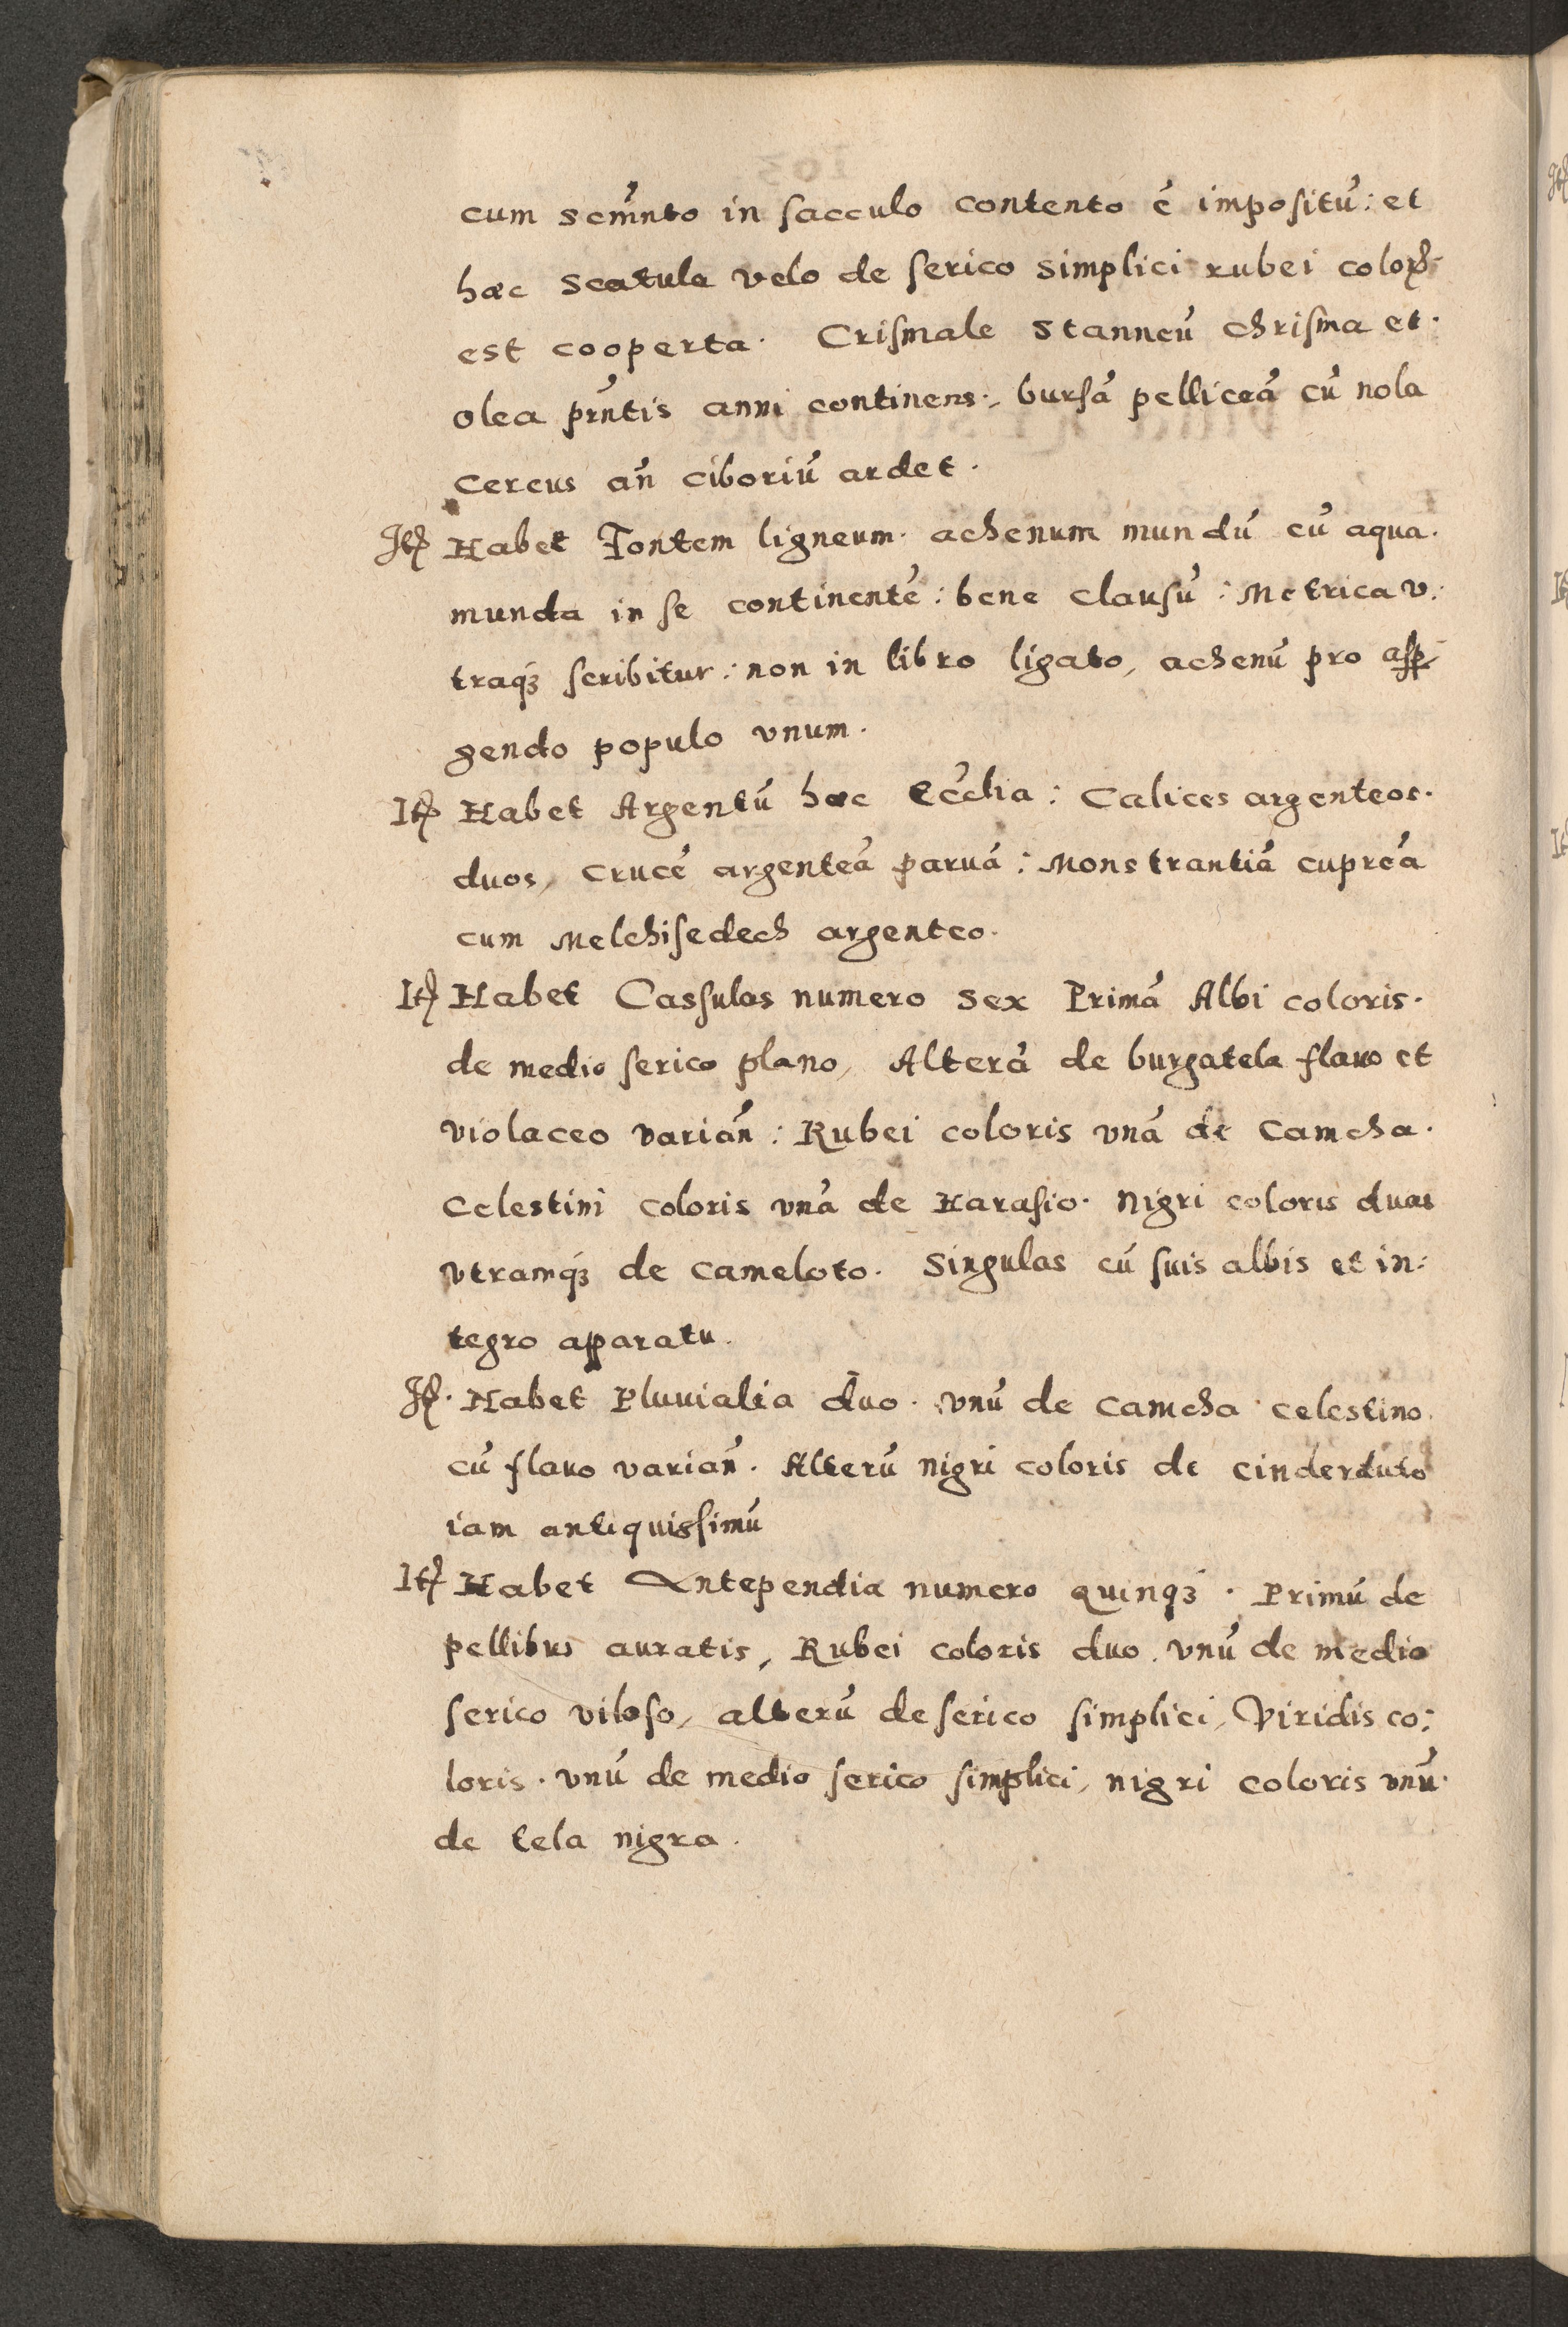 cum scm̃nto in sacculo contento ẽ impositũ: et
hæc scatula velo de serico simplici rubei coloꝝ.
est cooperta. Crismale stanneũ chrisma et.
olea prñtis anni continens:, bursã pelliceã cũ nola
cereus añ ciboriũ ardet.
Itꝫ Habet Fontem ligneum. achenum mundũ cũ aqua.
munda in se continentẽ: bene clausũ: Metrica v:
traqꝫ scribitur: non in libro ligato, achenũ pro asꝑ
gendo populo vnum.
Itꝫ Habet Argentũ hæc Ecc̃lia: Calices argenteos.
duos, crucẽ argenteã paruã: Monstrantiã cupreã
cum Melchisedech argenteo.
Itꝫ Habet Cassulas numero sex Primã Albi coloris.
de medio serico plano, Alterã de burgatela flauo et
violaceo variañ: Rubei coloris vnã de Camcha.
Celestini coloris vnã de Harasio. Nigri coloris duas
vtramqꝫ de cameloto. Singulas cũ suis albis et in:
tegro apparatu.
Itꝫ. Habet Pluuialia duo. vnũ de camcha celestino.
cũ flauo variañ. Alterũ nigri coloris de cinderduto
iam antiquissimũ
Itꝫ Habet Antependia numero quinqꝫ. Primũ de
pellibus auratis, Rubei coloris duo. vnũ de medio
serico viloso, alterũ de serico simplici, Viridis co:
loris. vnũ de medio serico simplici, nigri coloris vnũ.
de tela nigra.